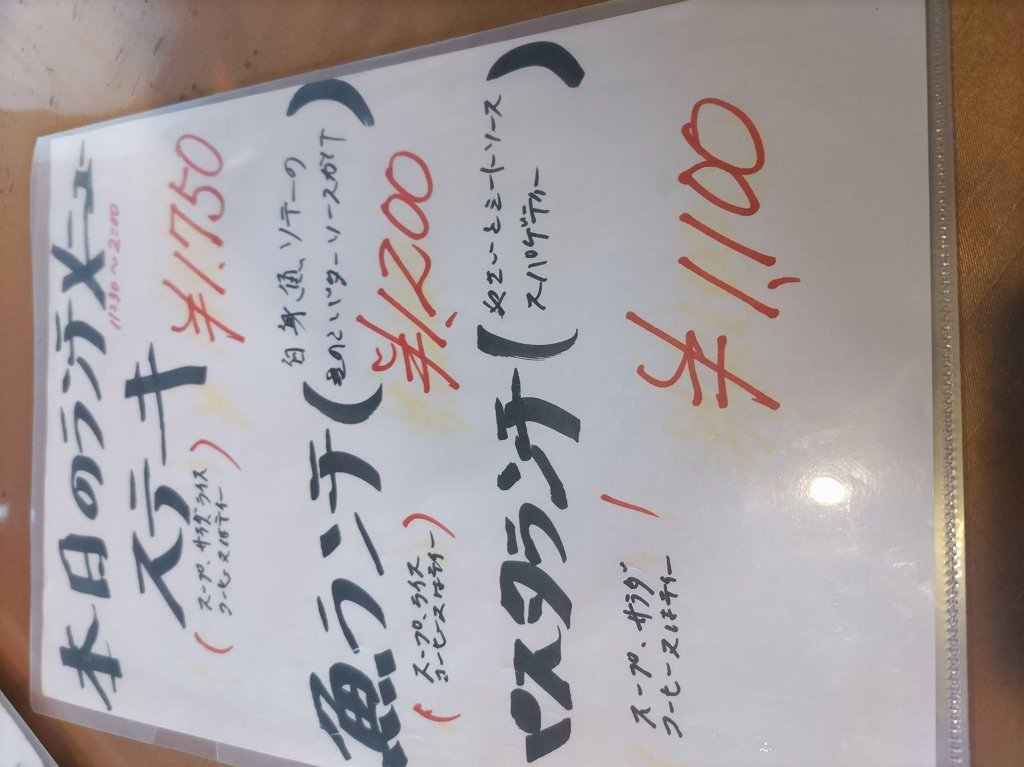 本日のランチメニュー
11:30〜2:00
ステーキ ¥1.750
(スープ、サラダ、ライス
コーヒー又はティー)
魚ランチ(白身魚ソテーの
きのこバターソースがけ)
¥1.200
(スープ、ライス
コーヒー又はティー)
パスタランチ(なすとミートソース
スパゲティー)
¥1,100
スープ、サラダ
コーヒー又はティー